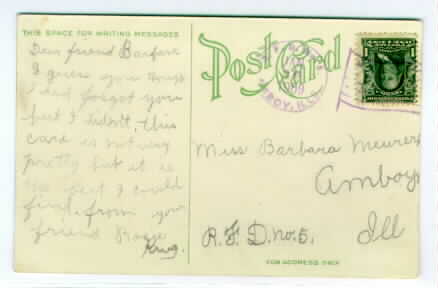 THIS SPACE FOR WRITING MESSAGES
Dear friend Barbara
I guess you
I had forgot you
but I didn't. this
card is not very
pretty but it is
the best I could
find. from your
friend Rosa
Krug.
Post Card
Miss Barbara Meurer
Amboy
R. F. D. no. 5. Ill
FOR ADDRESS ONLY